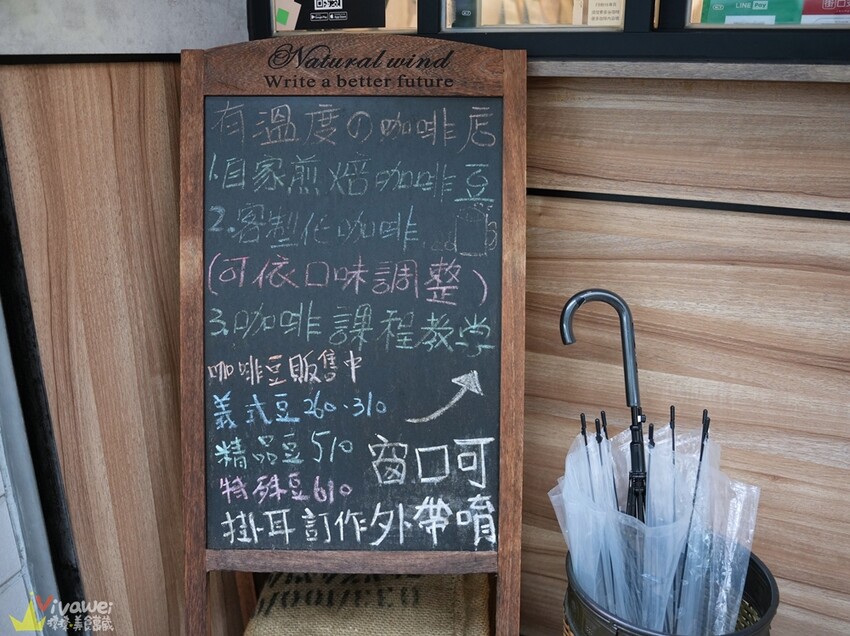 LINE Pay
Natural wind
Write a better future
有溫度の咖啡店
1.自家煎焙咖啡豆
2.客製化咖啡
(可依口味調整)
3.咖啡課程教学
咖啡豆販售中
義式豆260.310
精品豆510
特殊豆610
窗口可
掛耳訂作外帶唷
Vivawei